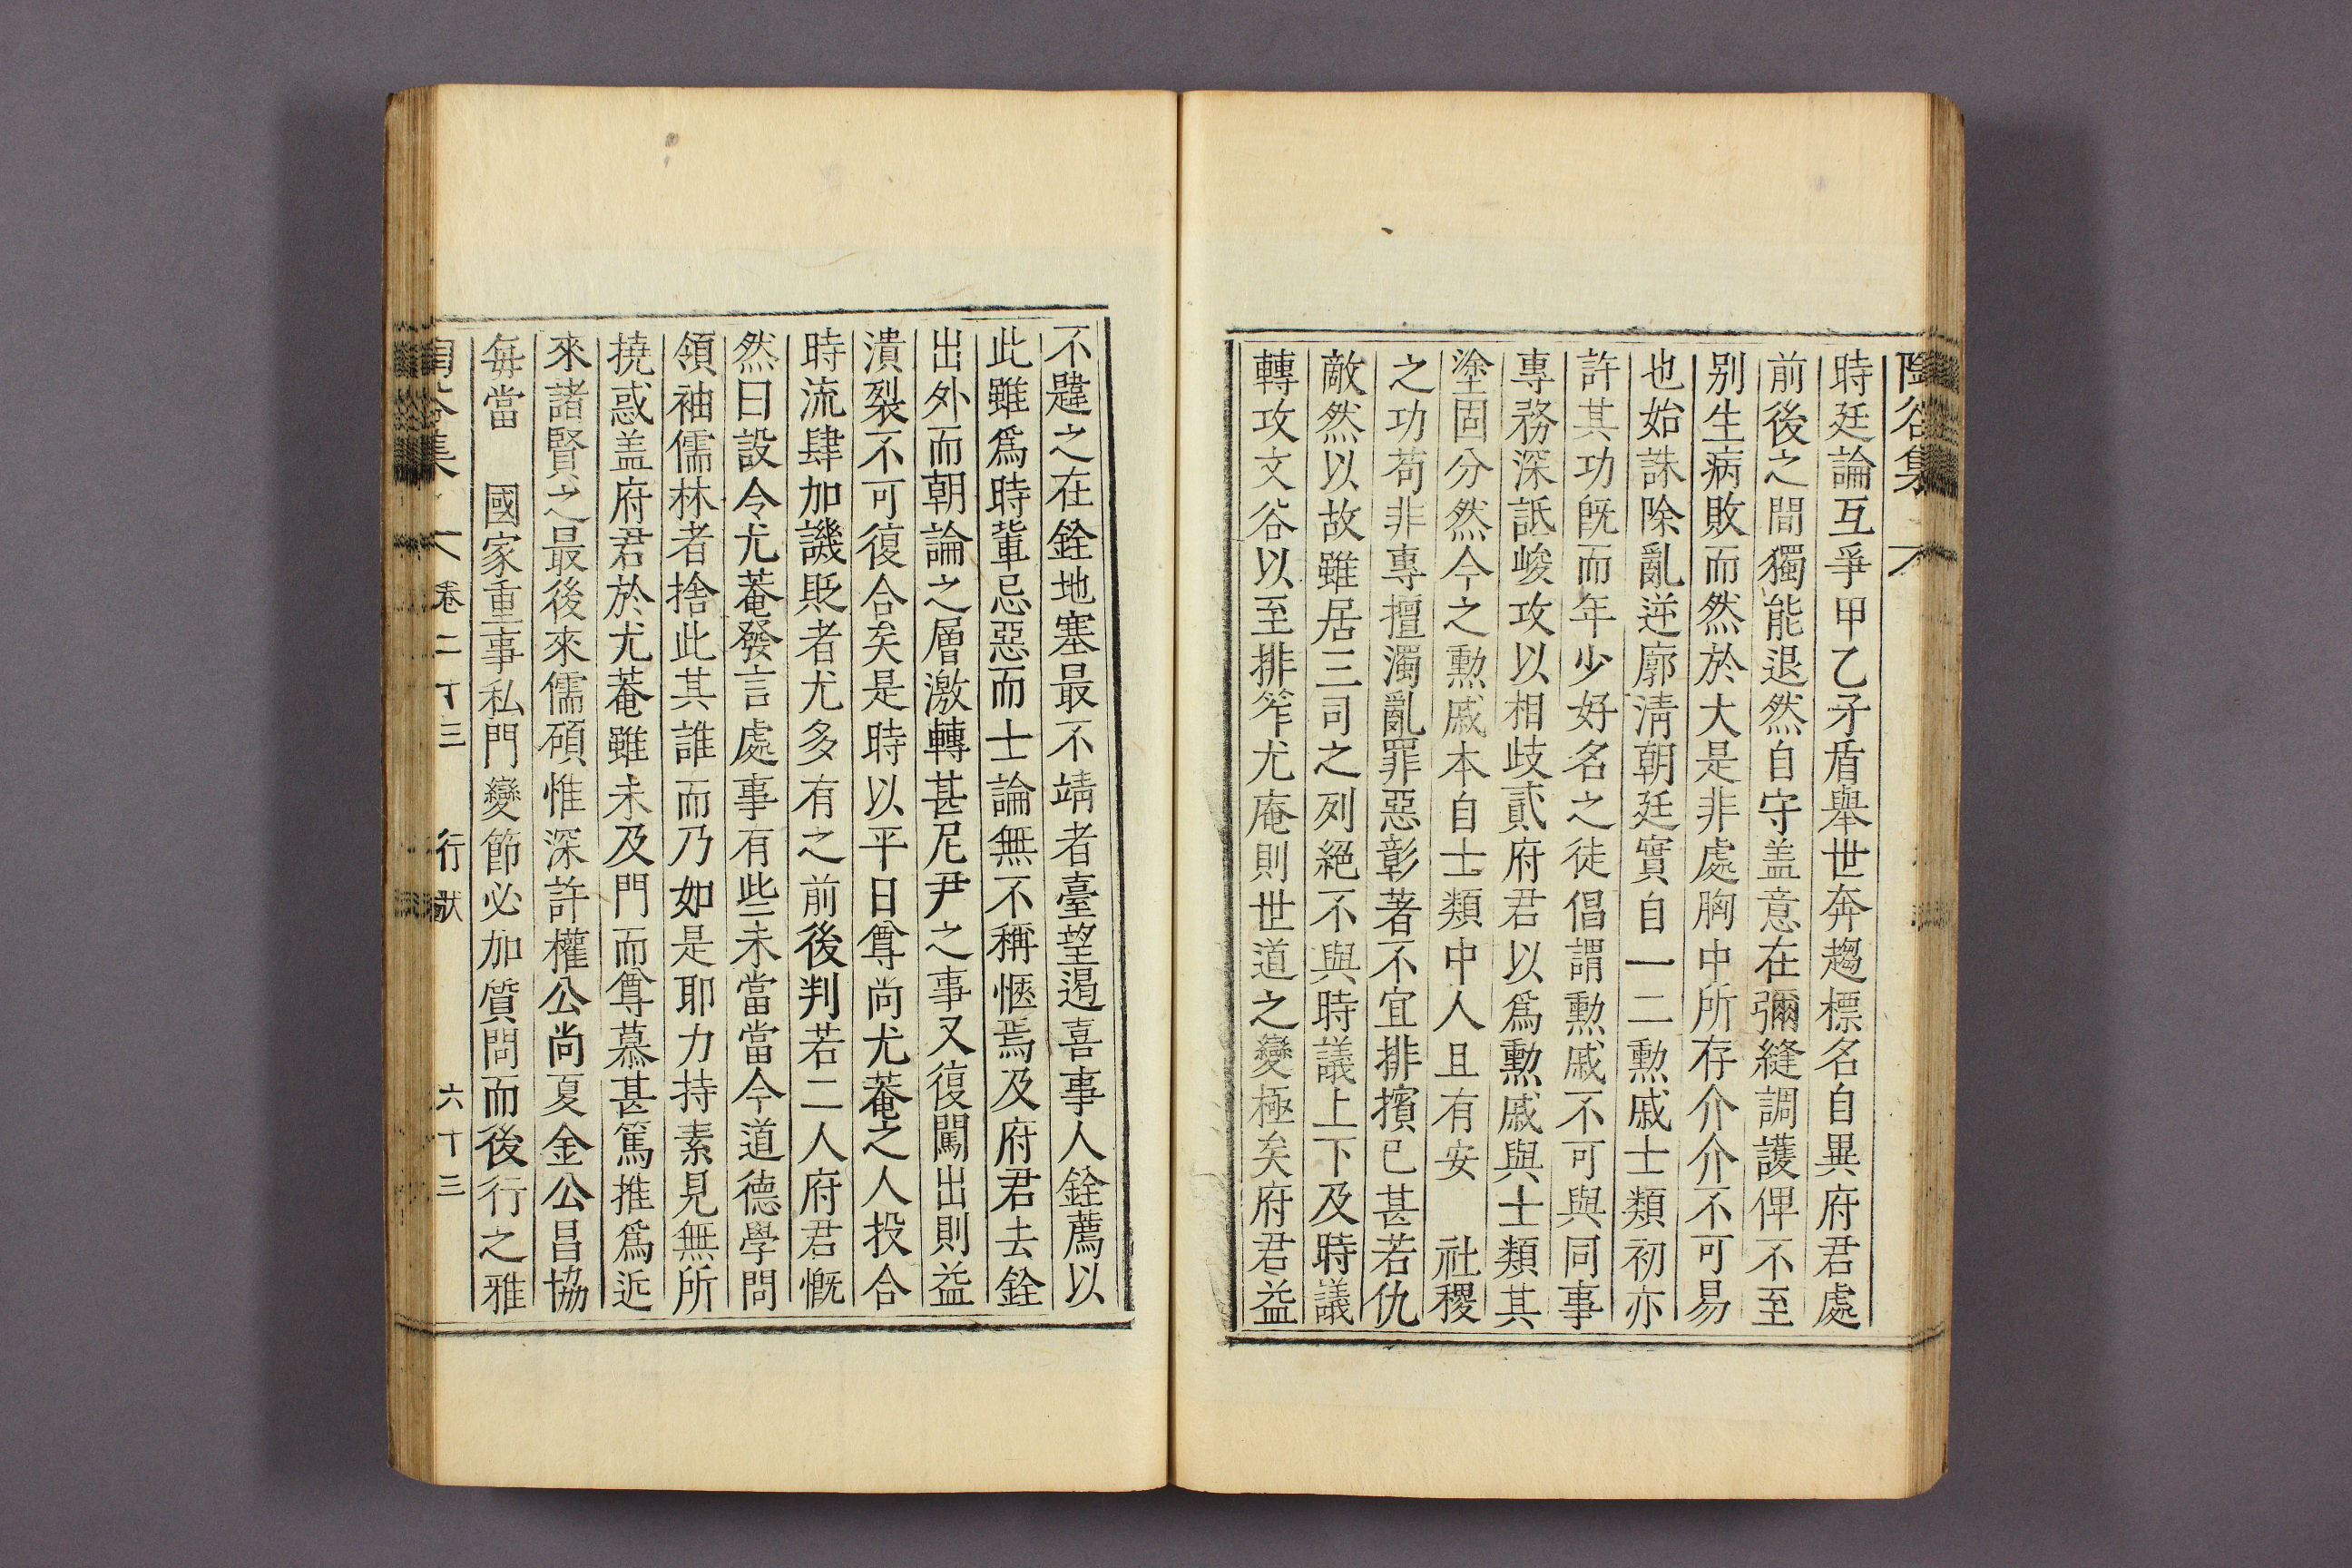 陶谷集
時廷論互爭甲乙矛盾舉世奔趨標名自異府君處
前後之間獨能退然自守盖意在彌縫調護俾不至
别生病敗而然於大是非處胸中所存介介不可易
也始誅除亂逆廓淸朝廷實自一二勲戚士類初亦
許其功旣而年少好名之徒倡謂勲戚不可與同事
專務深詆峻攻以相歧貳府君以爲勲戚與士類其
塗固分然今之勲戚本自士類中人且有安　社稷
之功苟非專擅濁亂罪惡彰著不宜排擯已甚若仇
敵然以故雖居三司之列絕不與時議上下及時議
轉攻文谷以至排笮尤庵則世道之變極矣府君益
不韙之在銓地塞最不靖者臺望遏喜事人銓薦以
此雖爲時輩忌惡而士論無不稱愜焉及府君去銓
出外而朝論之層激轉甚尼尹之事又復闖出則益
潰裂不可復合矣是時以平日尊尚尤菴之人投合
時流肆加譏貶者尤多有之前後判若二人府君慨
然曰設令尤菴發言處事有些未當當今道德學問
領袖儒林者捨此其誰而乃如是耶力持素見無所
撓惑盖府君於尤菴雖未及門而尊慕甚篤推爲近
來諸賢之最後來儒碩惟深許權公尚夏金公昌協
每當　國家重事私門變節必加質問而後行之雅
集 卷二十三 行狀 六十三